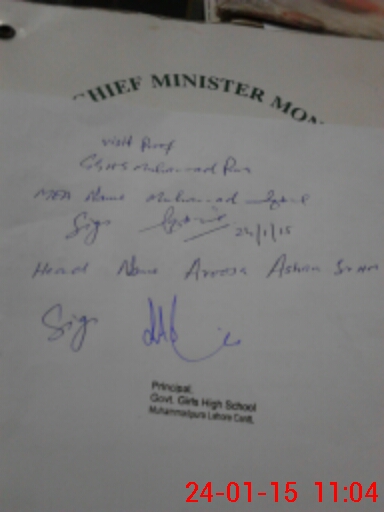 CHIEF MINISTER MON
visit Proof
GGHS Muhammad Pura
MEA Name Muhammad Iqbal
Sign 24/1/15
Head Name Aroosa
Sign
Principal
Govt. Girls High School
Muhammadpura Lahore Cantt.
24-01-15 11:04